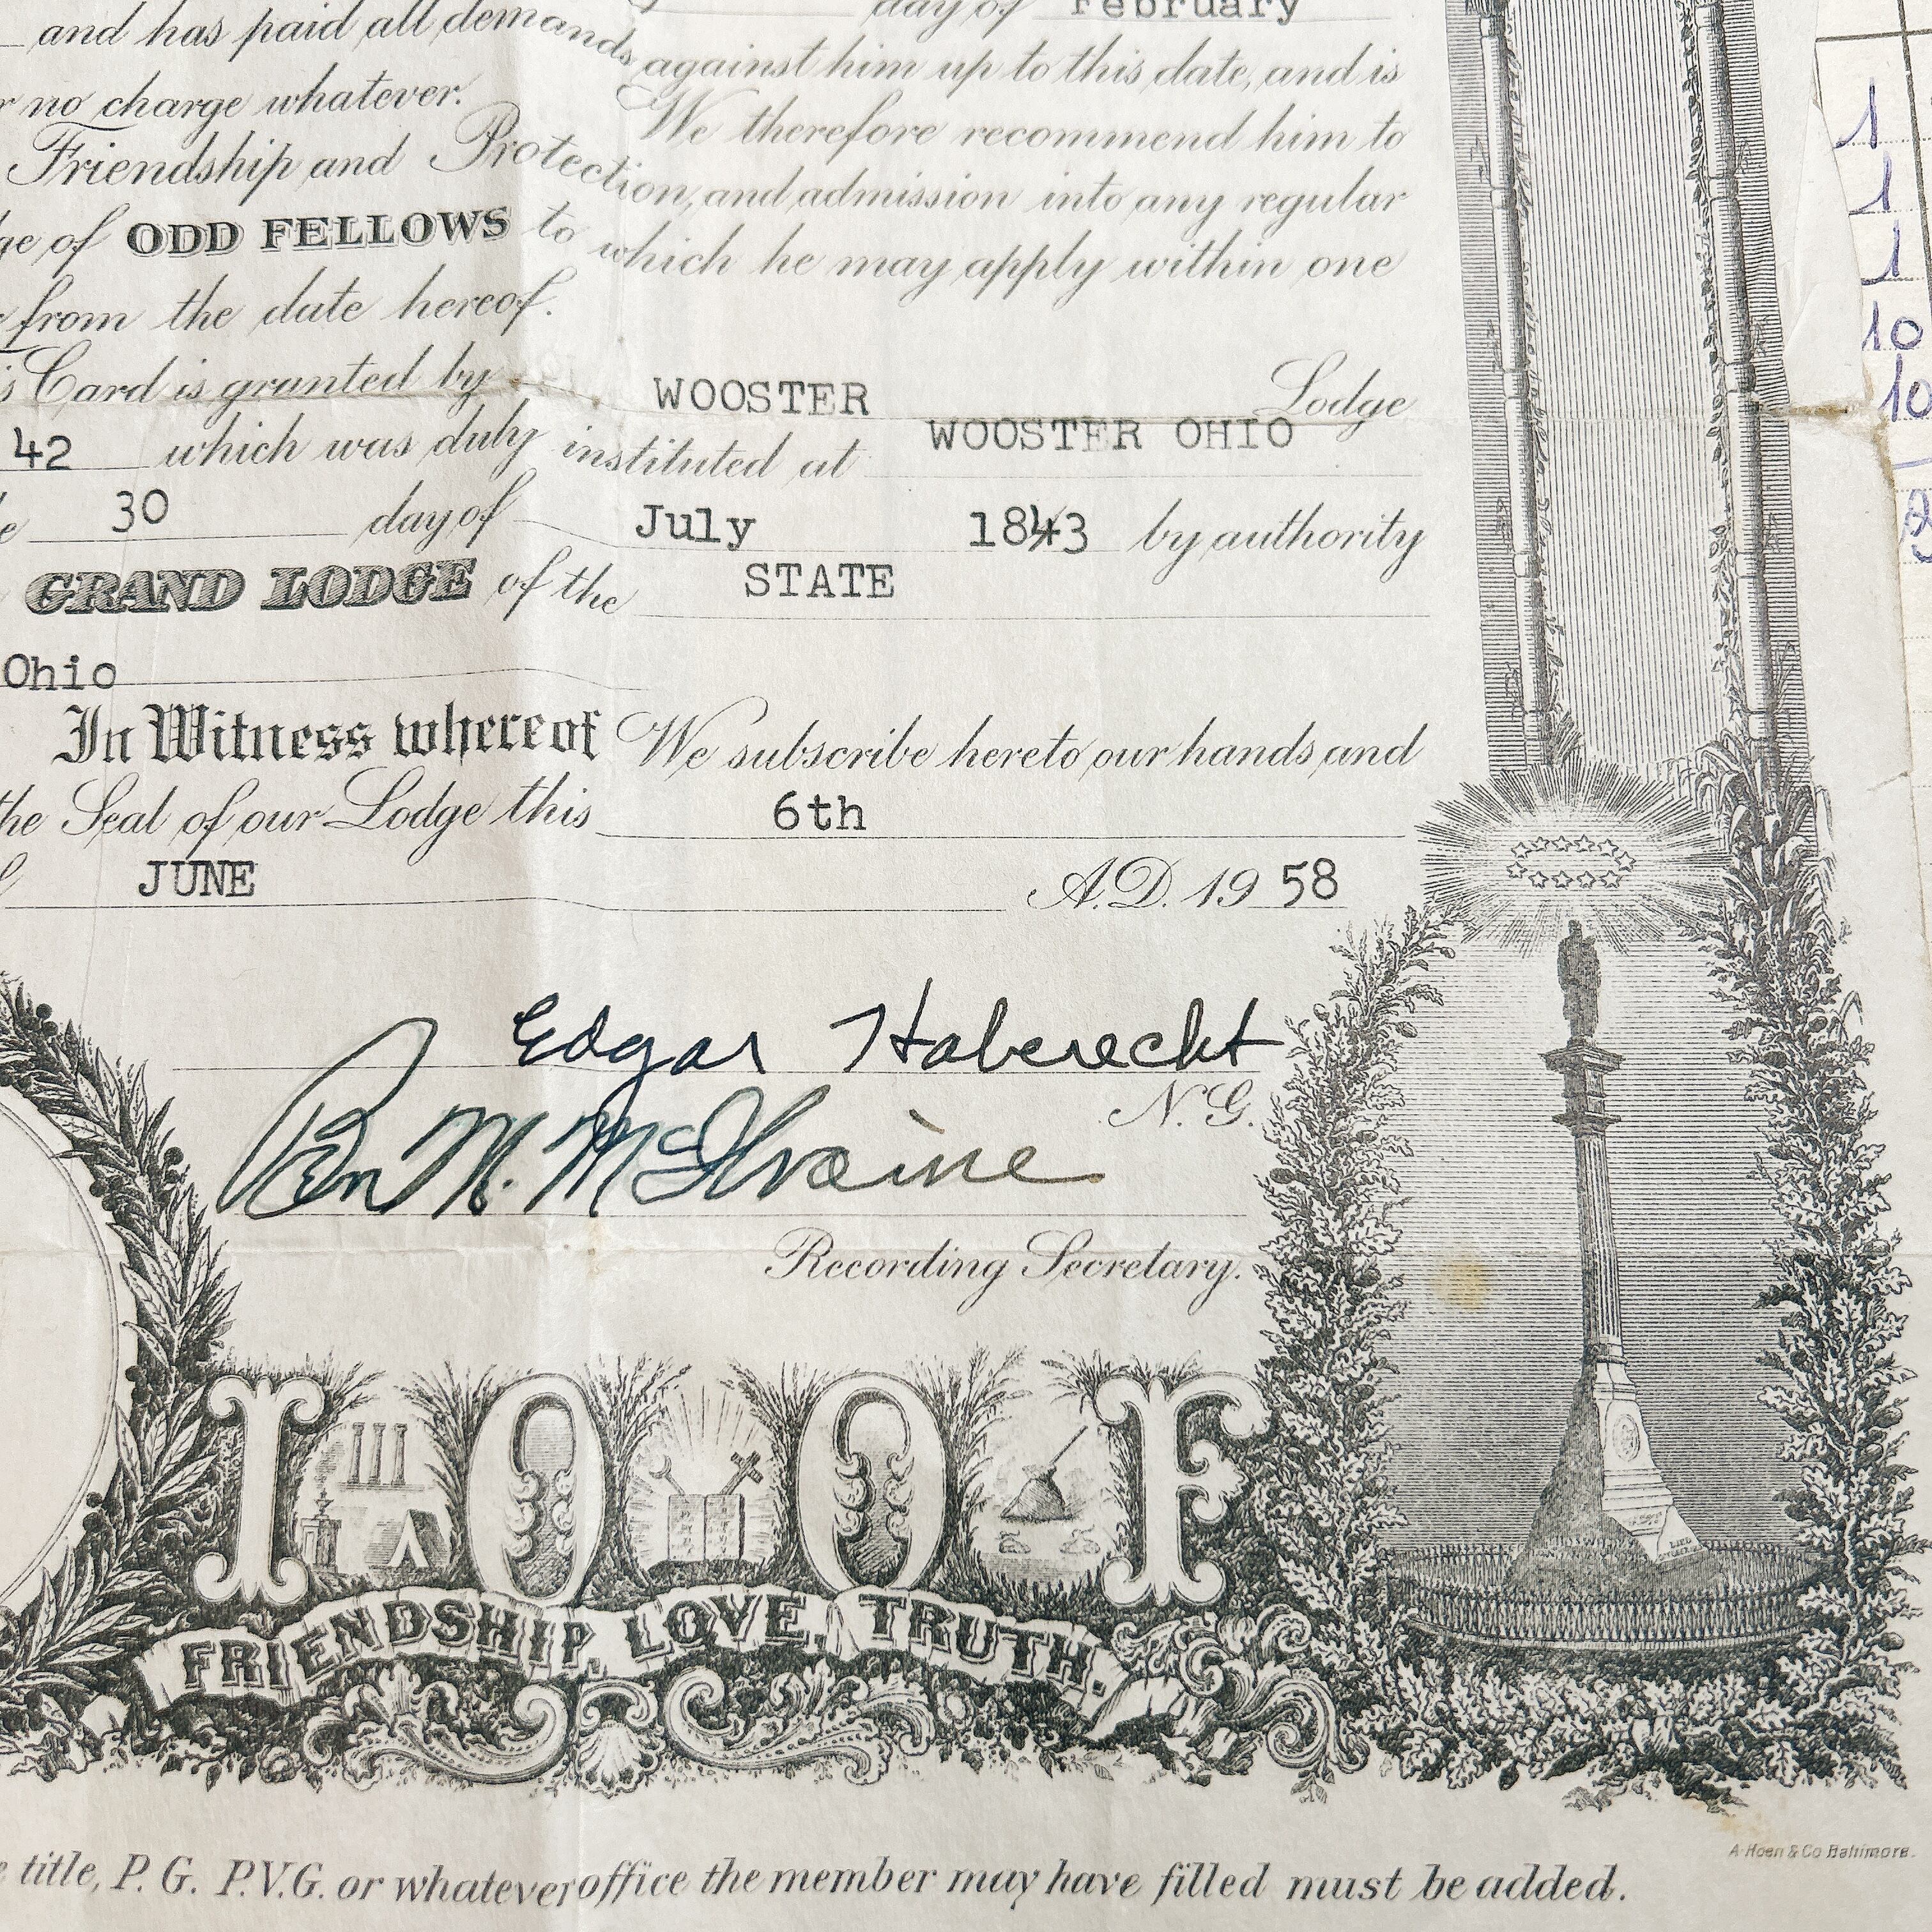 day of February
and has paid all demands against him up to this date, and is
no charge whatever. We therefore recommend him to
Friendship and Protection, and admission into any regular
of ODD FELLOWS to which he may apply within one
from the date hereof.
Card is granted by WOOSTER Lodge
42 which was duly instituted at WOOSTER OHIO
30 day of July 1843 by authority
GRAND LODGE of the STATE
Ohio
In Witness whereof We subscribe hereto our hands and
the Seal of our Lodge this 6th
JUNE A.D. 1958
Edgar Haberecht
N. G.
Ben M. McIlvaine
Recording Secretary.
I O O F
FRIENDSHIP, LOVE, TRUTH.
A. Hoen & Co Baltimore.
title, P. G. P.V.G. or whatever office the member may have filled must be added.
1
1
1
10
10